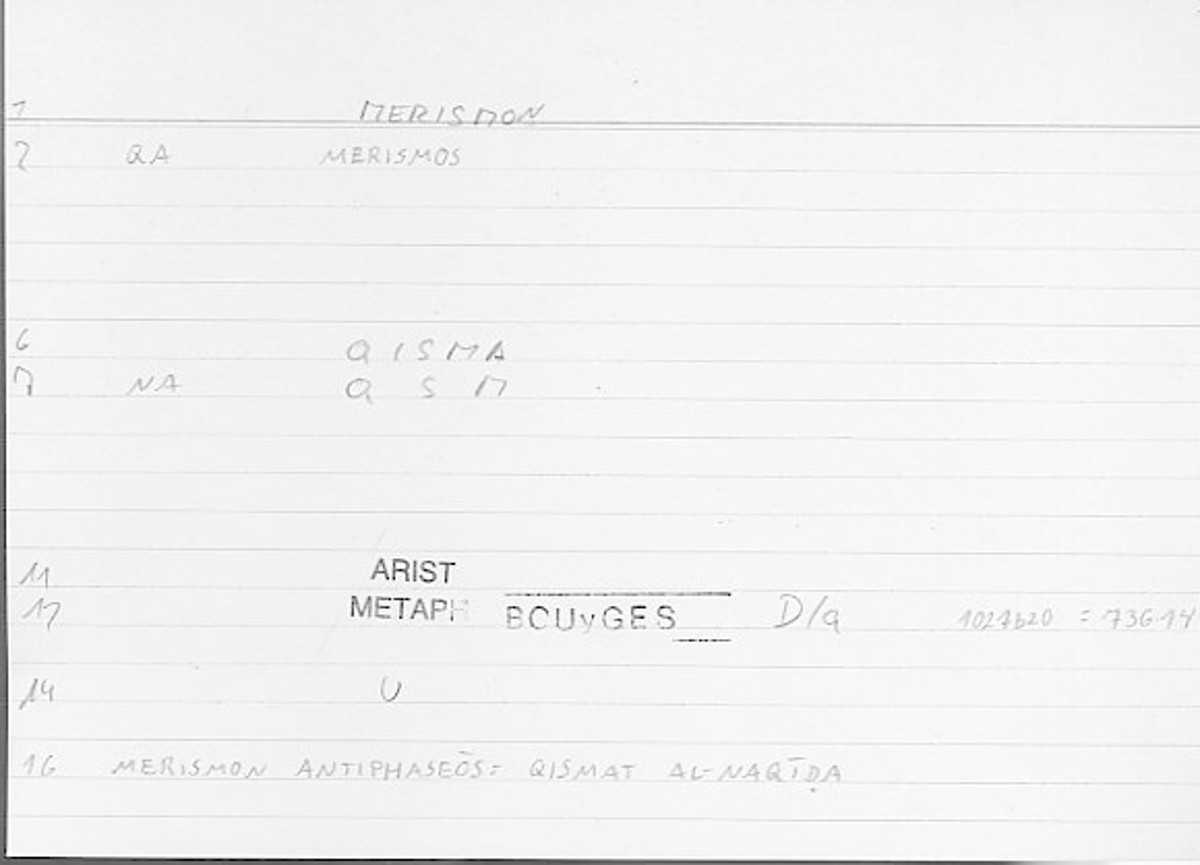 1 MERISMON
2 QA MERISMOS
6 QISMA
7 NA Q S M
11 ARIST
12 METAPH BOUyGES D/a 1027b20 = 736.14
14 U
16 MERISMON ANTIPHASEŌS= QISMAT AL-NAQĪḌA